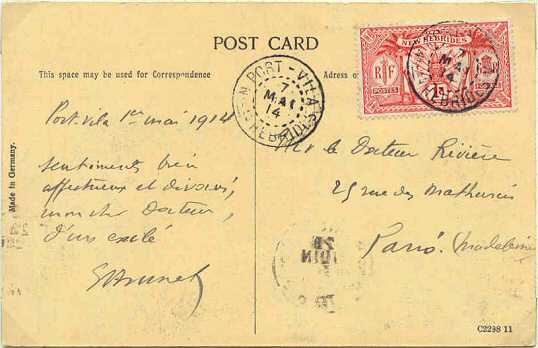 POST CARD
This space may be used for Correspondence
Adress o
NEW HEBRIDES
R F
POSTES
1D
PORT-VILA
7
MAI
14
NEW HEBRIDES
7
MAI
14
HEBRIDES
Port vila 1er mai 1914
sentiments très
affectueux et
mon cher Docteur,
d'un exilé
Mr le Docteur Rivière
25 rue des Mathurins
Paris. (Madeleine
Made in Germany.
JUIN
C2298 11